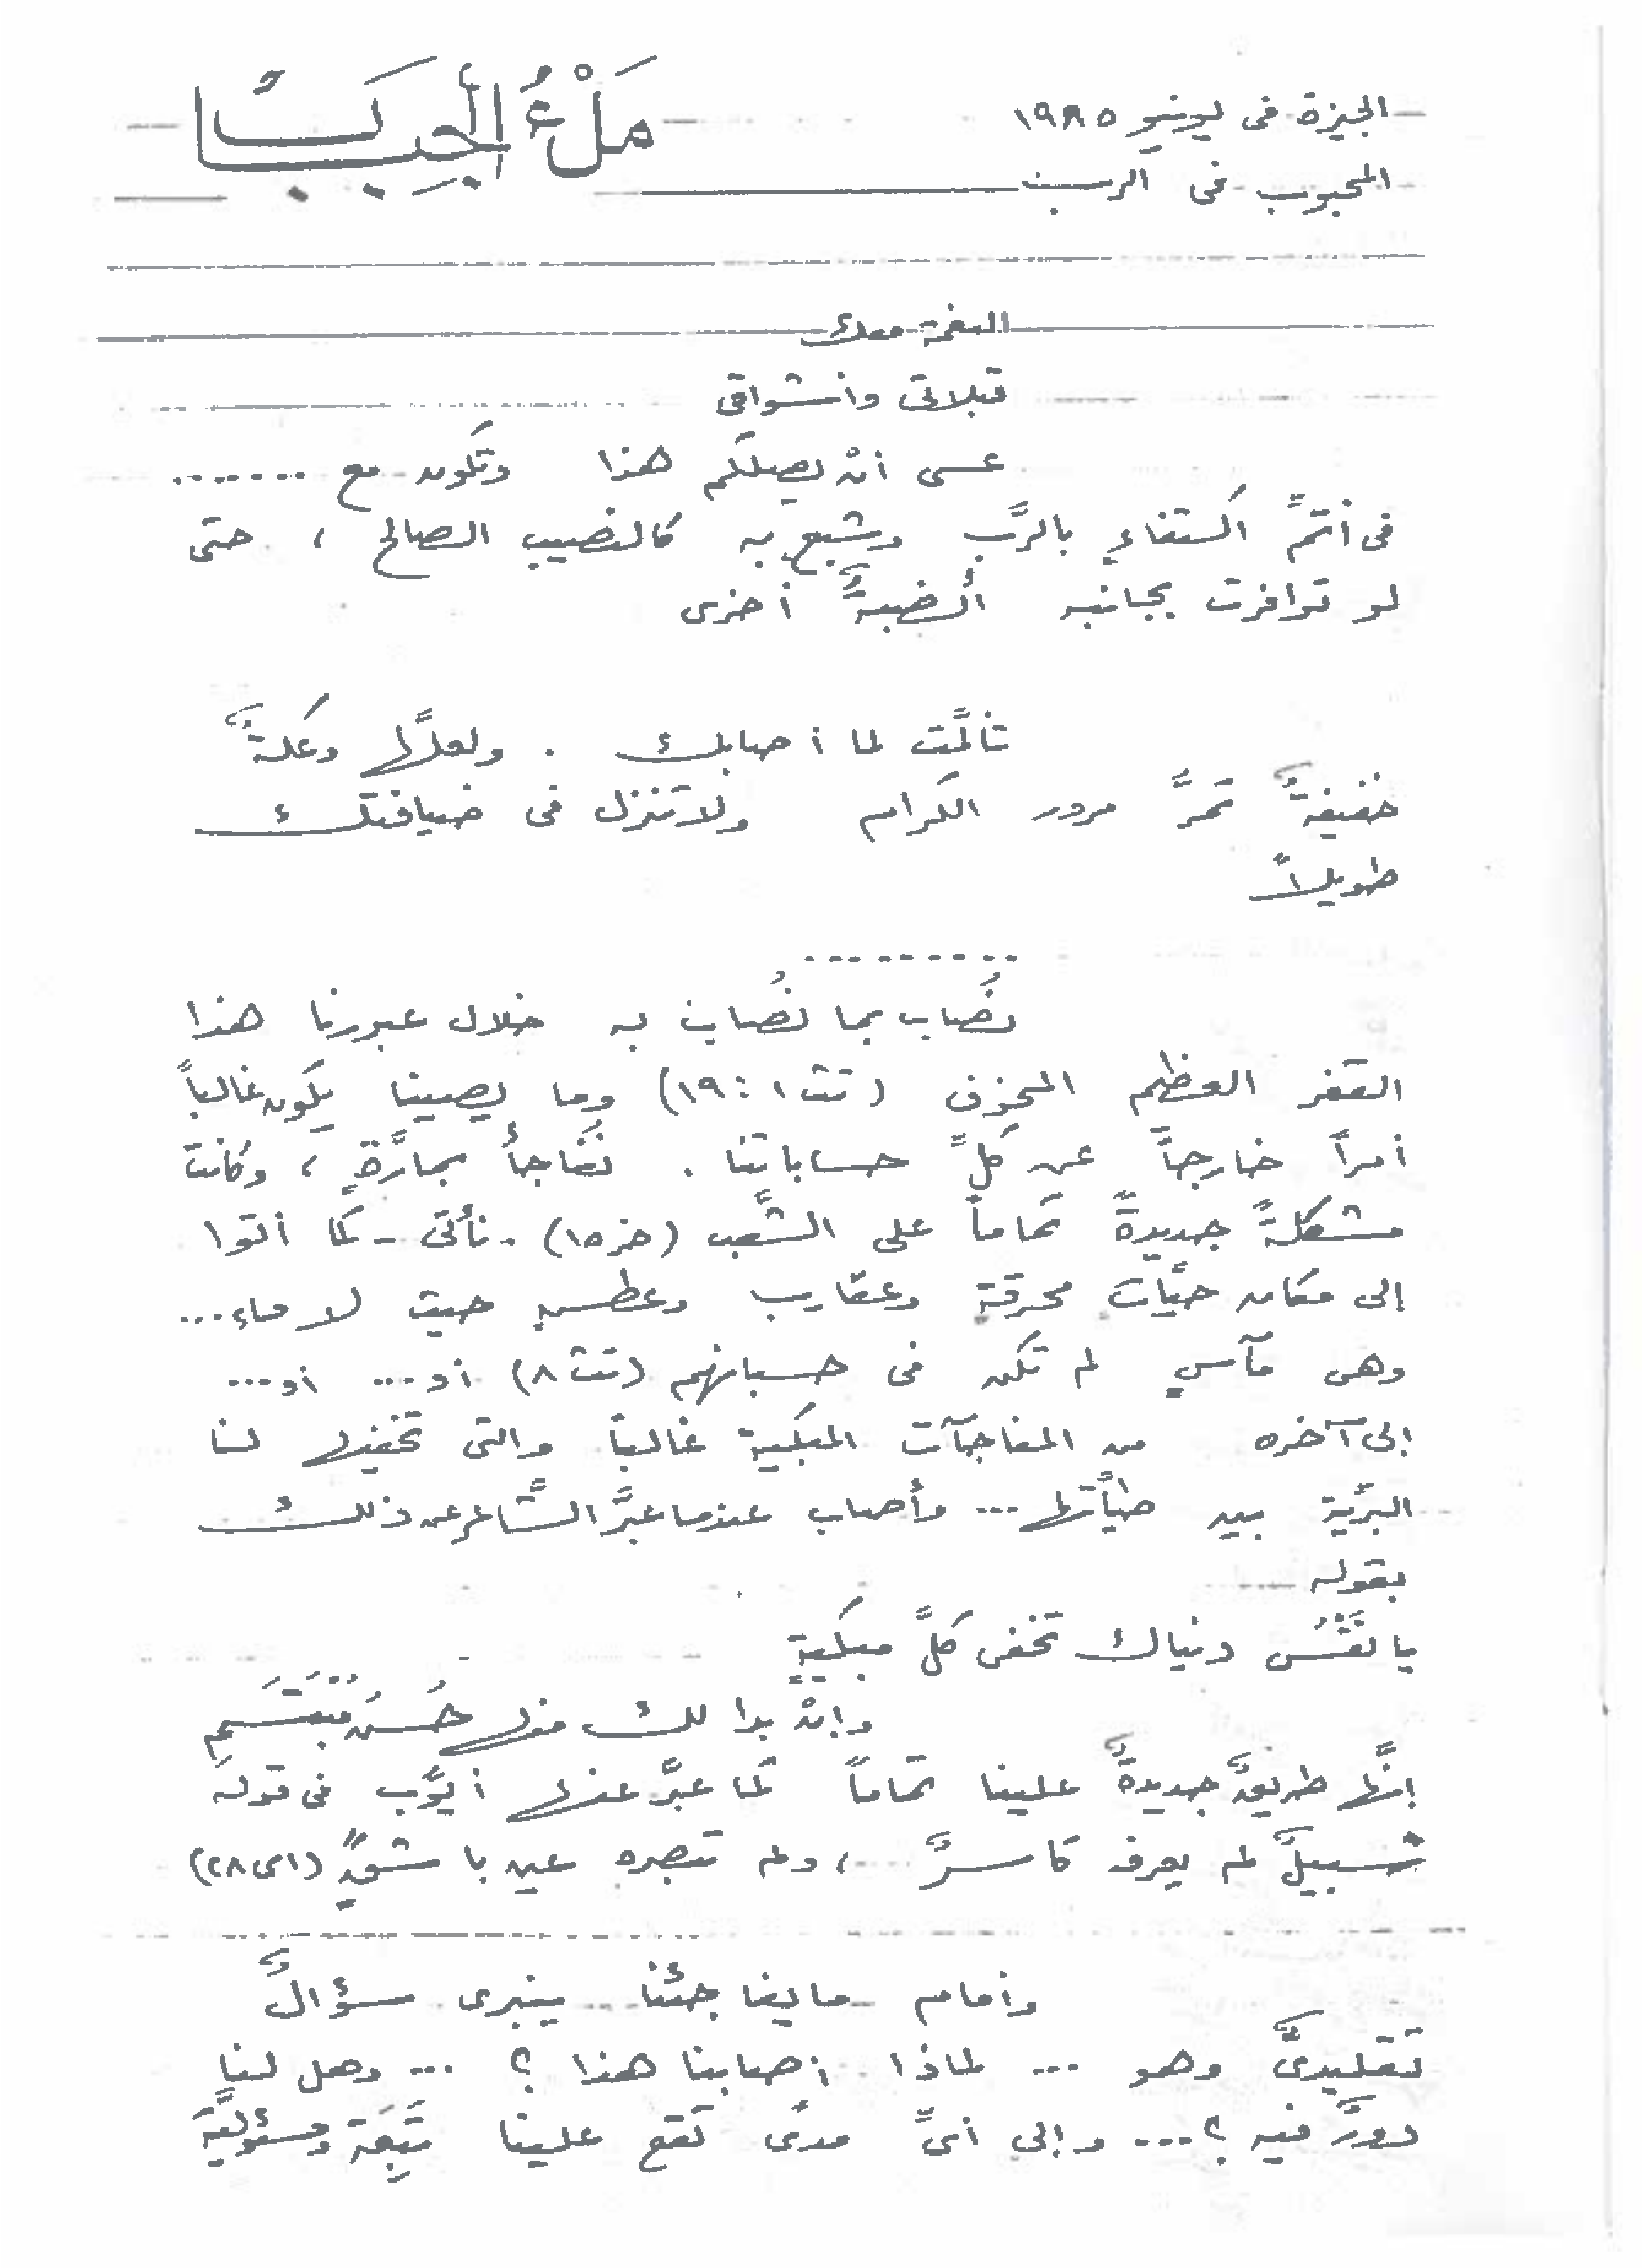 الجيزة فى يونيو ١٩٨٥
مَلْءُ الجِبَابَ
المحبوب فى الرب
النعمة معك
قبلاتى وأشواقى
عسى أنْ يصلكم هذا وتكون مع .......
فى أتمِّ اكتفاءٍ بالرَّب وشبعٍ به كالنصيب الصالح ، حتى
لو توافرت بجانبه أنصبةٌ أخرى
تألَّمت لما أصابك . ولعلَّها وعكةٌ
خفيفةٌ تمرُّ مرور الكرام ولا تنزل فى ضيافتك
طويلاً
..........
نُصاب بما نُصاب به خلال عبورنا هذا
القفر العظيم المخوف (تث ١ : ١٩) وما يصيبنا يكون غالباً
أمراً خارجاً عن كلِّ حساباتنا . نُفَاجأُ بمارَّةٍ ، وكانت
مشكلةً جديدةً تماماً على الشَّعب (خر ١٥) . نأتى - كما أتوا
إلى مكان حيَّات محرقة وعقارب وعطش حيث لا ماء...
وهى مآسٍ لم تكن فى حسبانهم (تث ٨) أو... أو...
إلى آخره من المفاجآت المبكية غالباً والتى تخفيها لنا
البرِّية بين طيَّاتها... وأصاب عندما عبَّر الشَّاعر عن ذلك
بقوله
يا نَفْسُ دنياك تخفى كلَّ مبكيةٍ
وإنْ بدا لك منها حُسنُ مُبْتَسَمِ
إنَّها طريقٌ جديدةٌ علينا تماماً كما عبَّر عنها أيوَّب فى قوله
سبيلٌ لم يعرفه كاسرٌ ... ، ولم تبصره عين باشقٍ (اى ٢٨)
وأمام ما يفاجئنا ينبرى سؤالٌ
تقليدىٌّ وهو ... لماذا أصابنا هذا ؟ ... وهل لنا
دورٌ فيه ؟ ... وإلى أىِّ مدىً تقع علينا تَبِعَة ومسئوليَّة